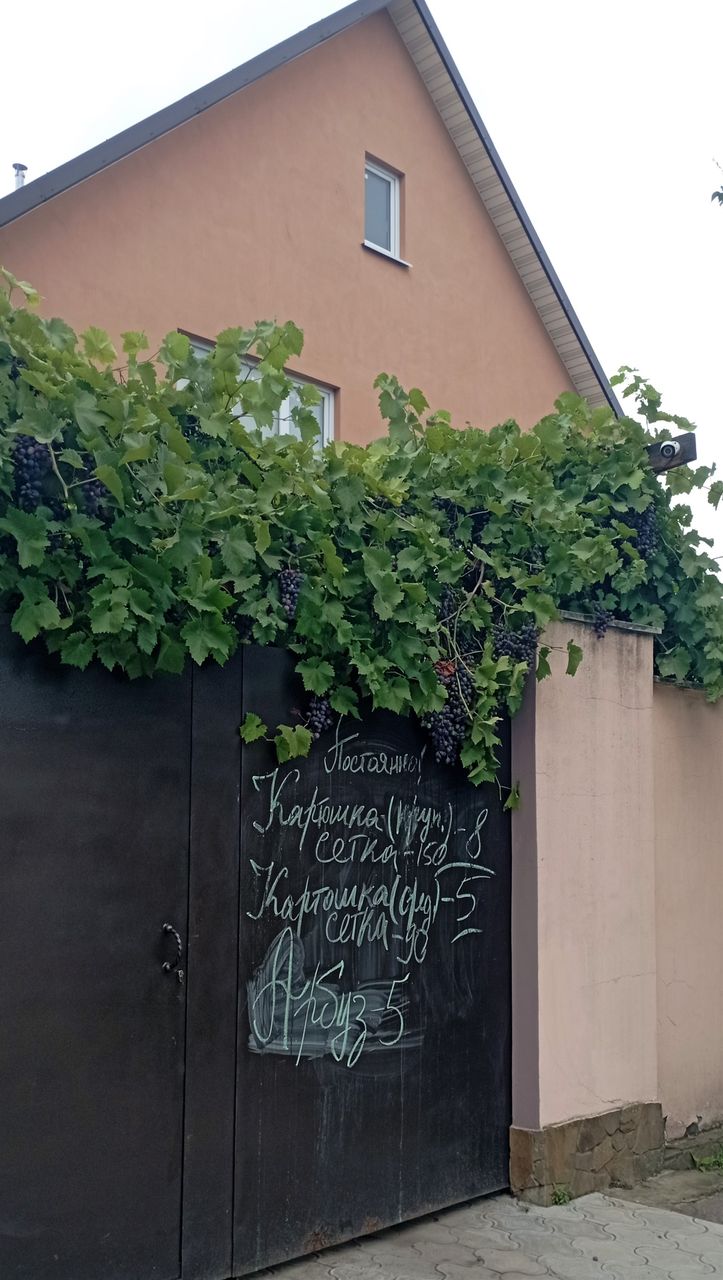 Постоянно!
Картошка(круп.)-8
сетка-150
Картошка(срд)-5
сетка-90
Арбуз-5